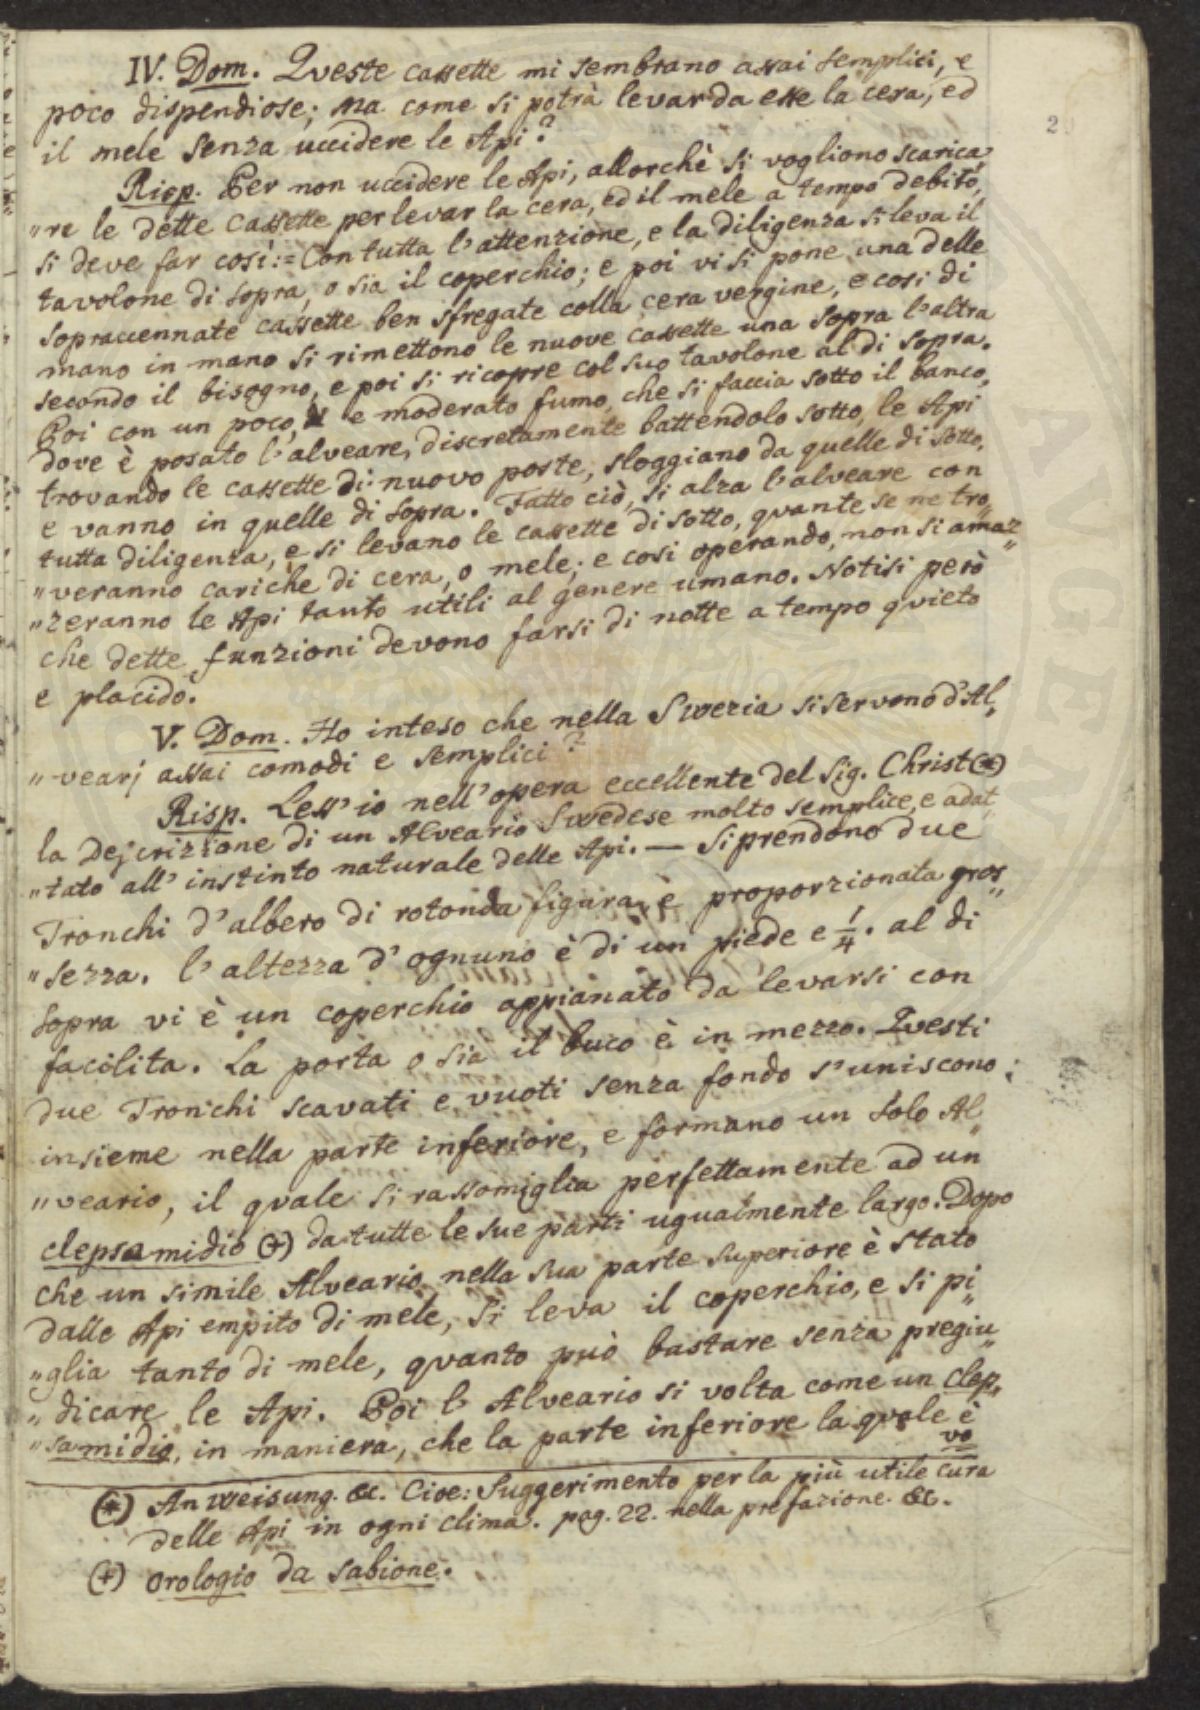 IV. Dom. Queste cassette mi sembrano assai semplici, e
poco dispendiose; ma come si potrà levar da esse la cera, ed
il mele senza uccidere le Api?
Risp. Per non uccidere le Api, allorchè si vogliono scarica„
„re le dette cassette per levar la cera, ed il mele a tempo debito,
si deve far così:= Con tutta l'attenzione, e la diligenza si leva il
tavolone di sopra, o sia il coperchio; e poi vi si pone una delle
sopraccennate cassette ben sfregate colla cera vergine, e così di
mano in mano si rimettono le nuove cassette una sopra l'altra
secondo il bisogno, e poi si ricopre col suo tavolone al di sopra.
Poi con un poco, e moderato fumo, che si faccia sotto il banco,
dove è posato l'alveare, discretamente battendolo sotto, le Api
trovando le cassette di nuovo poste, sloggiano da quelle di sotto,
e vanno in quelle di sopra. Fatto ciò, si alza l'alveare con
tutta diligenza, e si levano le cassette di sotto, quante se ne tro„
„veranno cariche di cera, o mele; e così operando, non si amaz„
„zeranno le Api tanto utili al genere umano. Notisi però
che dette funzioni devono farsi di notte a tempo quieto
e placido.
V. Dom. Ho inteso che nella Swezia si servono d'Al„
„vearj assai comodi e semplici?
Risp. Less' io nell'opera eccellente del Sig. Christ (*)
la Descrizione di un Alveario Swedese molto semplice, e adat„
„tato all' instinto naturale delle Api. — Si prendono due
Tronchi d'albero di rotonda figura, è proporzionata gros„
„sezza. l'altezza d'ognuno è di un piede e 1/4. al di
sopra vi è un coperchio appianato da levarsi con
facilita. La porta o sia il buco è in mezzo. Questi
due Tronchi scavati e vuoti senza fondo s'uniscono
insieme nella parte inferiore, e formano un solo Al„
„veario, il quale si rassomiglia perfettamente ad un
clepsamidio (+) da tutte le sue parti ugualmente largo. Dopo
che un simile Alveario nella sua parte superiore è stato
dalle Api empito di mele, si leva il coperchio, e si pi„
„glia tanto di mele, quanto può bastare senza pregiu„
„dicare le Api. Poi l'Alveario si volta come un clep„
„samidio, in maniera, che la parte inferiore la quale è
vo
(*) Anweisung. &c. Cioe: Suggerimento per la più utile cura
delle Api in ogni clima. pag. 22. nella prefazione &c.
(+) orologio da sabione.
2